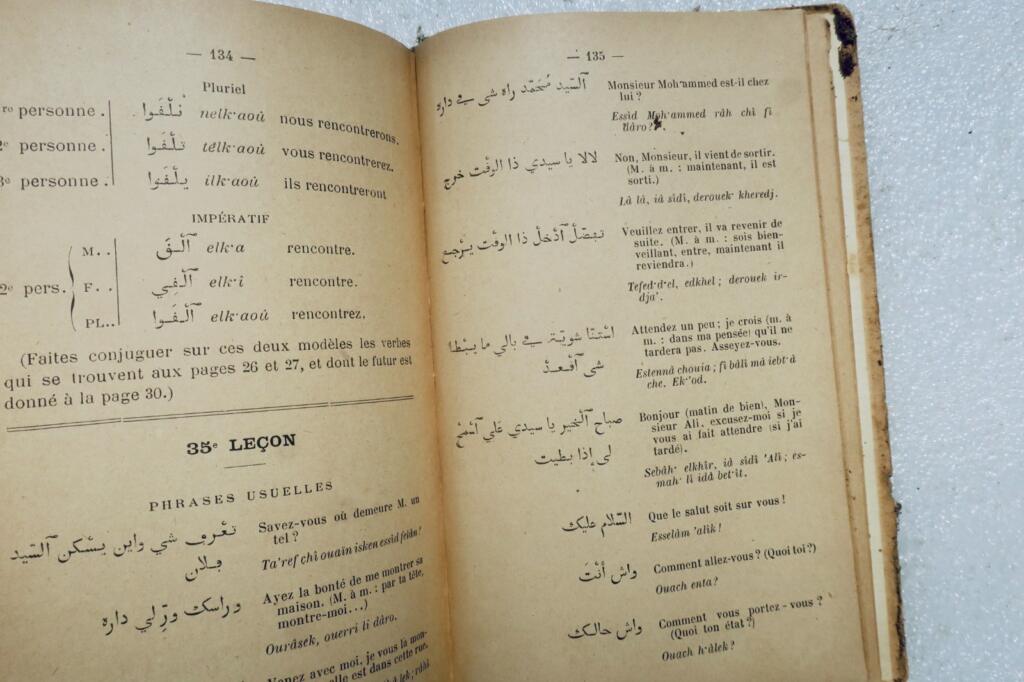 — 134 —
Pluriel
re personne . نلْفَوا nelk'aoù nous rencontrerons.
e personne . تلْفَوا telk'aoù vous rencontrerez.
3e personne . يلْفَوا ilk'aoù ils rencontreront
IMPÉRATIF
M. . آلْقَ elk'a rencontre.
2e pers. F. . آلْفِي elk'i rencontre.
PL.. آلْفَوا elk'aoù rencontrez.
(Faites conjuguer sur ces deux modèles les verbes
qui se trouvent aux pages 26 et 27, et dont le futur est
donné à la page 30.)
35e LEÇON
PHRASES USUELLES
تعْرف شي واين يسْكن آلسّيد
فلان
Savez-vous où demeure M. un
tel ?
Ta'ref chi ouaïn isken essid felân ?
وراسك ورِّ لي داره
Ayez la bonté de me montrer sa
maison. (M. à m. : par ta tête,
montre-moi...)
Ourâsek, ouerri li dâro.
Venez avec moi, je vous la mon-
elle est dans cette rue.
— 135 —
آلسّيد مُحَمّد راه شي في داره
Monsieur Moh'ammed est-il chez
lui ?
Essid Moh'ammed râh chi fi
dâro ?
لالا يا سيدي ذا الوقْت خرج
Non, Monsieur, il vient de sortir.
(M. à m. : maintenant, il est
sorti.)
Là là, iâ sidi, derouek' kheredj.
تفضّلْ آدْخلْ ذا الوقْت يرْجع
Veuillez entrer, il va revenir de
suite. (M. à m. : sois bien-
veillant, entre, maintenant il
reviendra.)
Tefed'd'el, edkhel ; derouek ir-
dja'.
اسْتنّا شويّة في بالي ما يبْطا
شي آفْعدْ
Attendez un peu ; je crois (m. à
m. : dans ma pensée) qu'il ne
tardera pas. Asseyez-vous.
Estennâ chouïa ; fi bâli mâ iebt'â
che. Ek'od.
صباح آلْخير يا سيدي علي آسْمحْ
لي إذا بطيت
Bonjour (matin de bien), Mon-
sieur Ali, excusez-moi si je
vous ai fait attendre (si j'ai
tardé).
Sebâh' elkhîr, iâ sidi 'Ali ; es-
mah' li idâ bet'it.
السّلام عليك
Que le salut soit sur vous !
Esselâm 'alik !
واش أنْتَ
Comment allez-vous ? (Quoi toi ?)
Ouach enta ?
واش حالك
Comment vous portez-vous ?
(Quoi ton état ?)
Ouach h'âlek ?